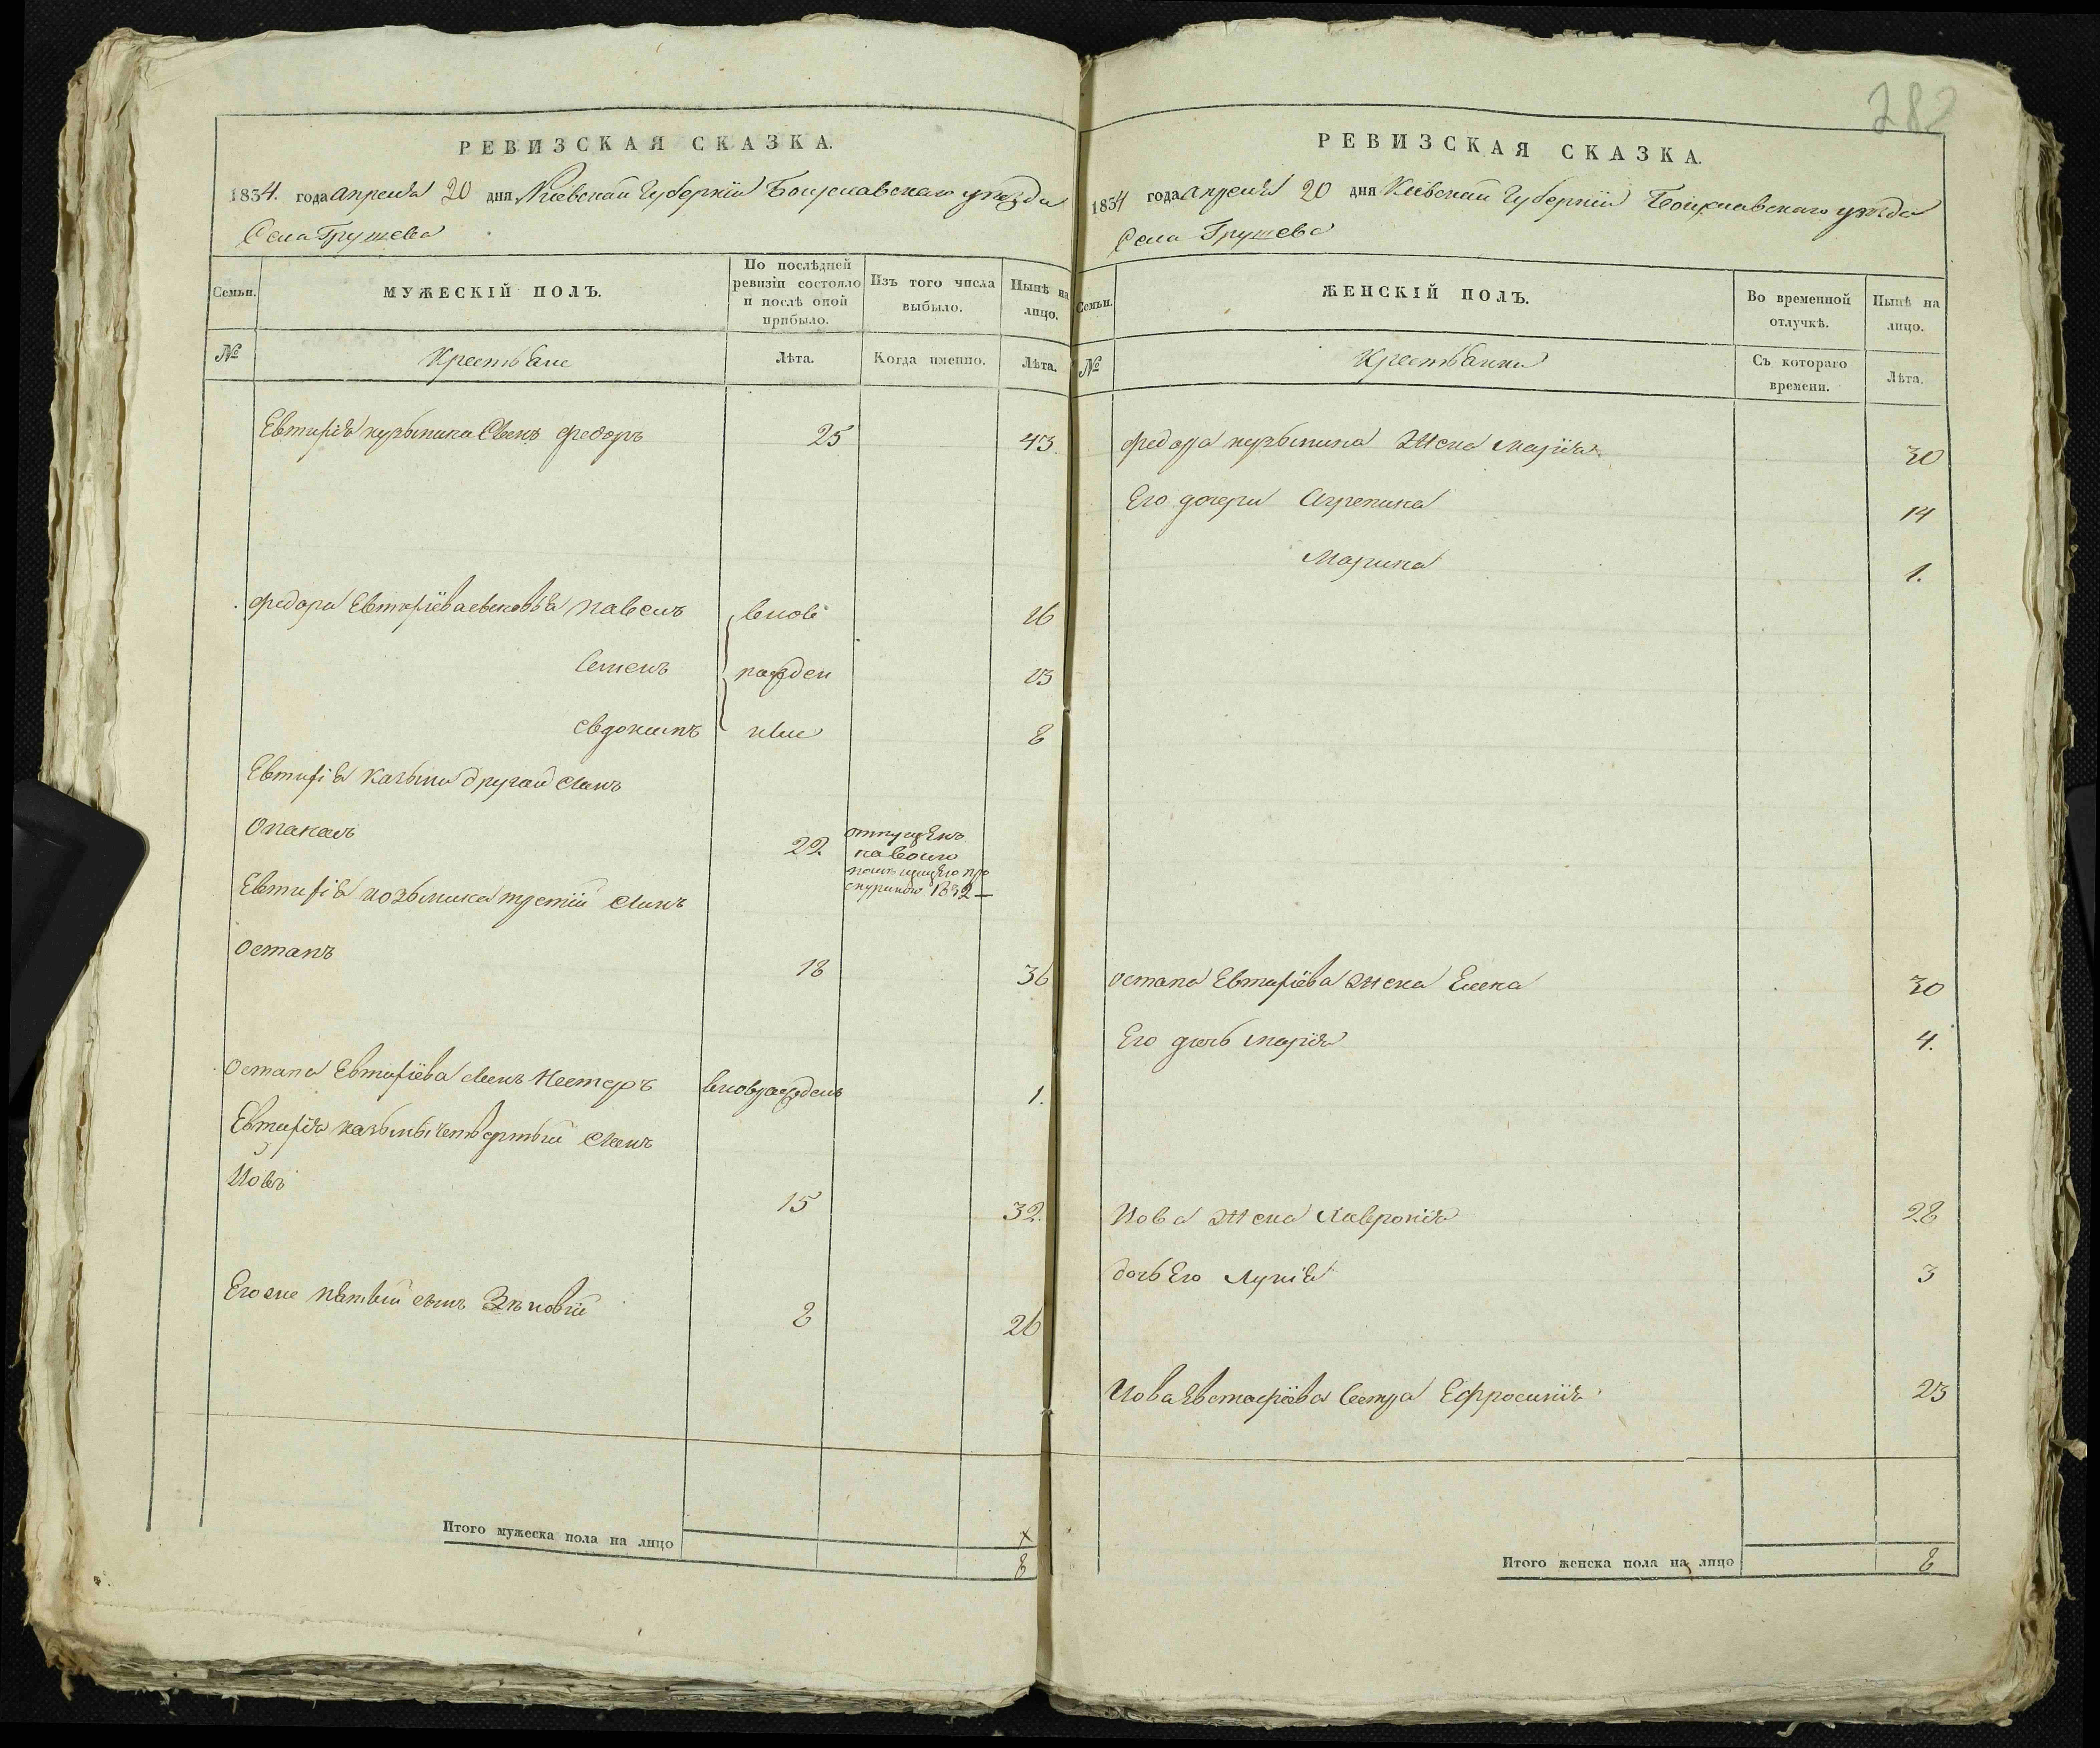 РЕВИЗСКАЯ СКАЗКА.
1834. года апреля 20 дня Киевской Губернiи Богуславскаго уезда
Села Грушева
Семьи.
МУЖЕСКIЙ ПОЛЪ.
По послѣдней ревизiи состояло и послѣ оной прибыло.
Изъ того числа выбыло.
Нынѣ на лицо.
№
Крестьяне
Лѣта.
Когда именно.
Лѣта.
Федоръ 25 43
Федора Евтифiева сыновья Павелъ внов 16
Семенъ рожден 13
Евдокимъ ные 8
другой сынъ
22 отпущенъ
на волю
помещицею
1832
Евтифiя третiй сынъ
Остапъ 18 36
Остапа Евтифiева сынъ Нестеръ вновьрожденъ 1.
Евтифiя четвертый сынъ
Иовъ 15 32.
Его же пятый сынъ Зѣновiй 8 26
Итого мужеска пола на лицо 8
282
РЕВИЗСКАЯ СКАЗКА.
1834 года апреля 20 дня Киевской Губернiи Богуславскаго уезда
Села Грушева
Семьи.
ЖЕНСКIЙ ПОЛЪ.
Во временной отлучкѣ.
Нынѣ на лицо.
№
Крестьянки
Съ котораго времени.
Лѣта.
Федора жена Марiя 30
Его дочери Агрепина 14
Марина 1.
Остапа Евтифiева жена Елена 30
Его дочь Марiя 4.
Иова жена 28
дочь Его Лукiя 3
Иова сестра Ефросинiя 23
Итого женска пола на лицо 8